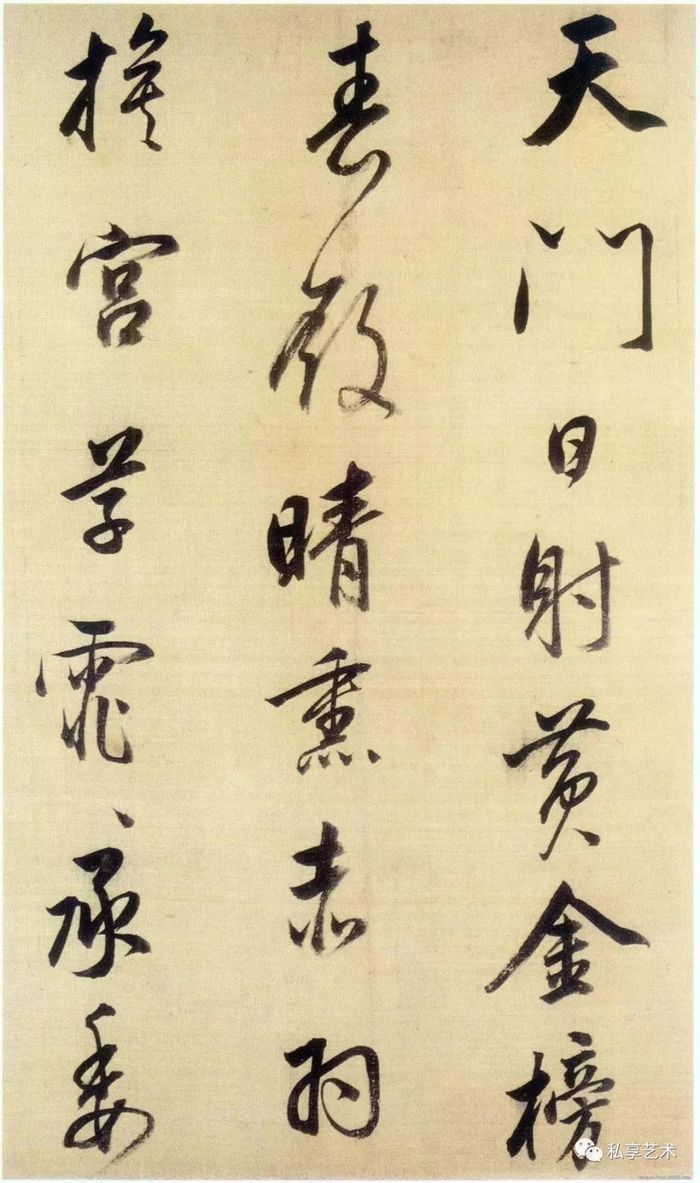 天門日射黃金榜
春殿晴熏赤羽
旗宮草霏〻承委
私享艺术